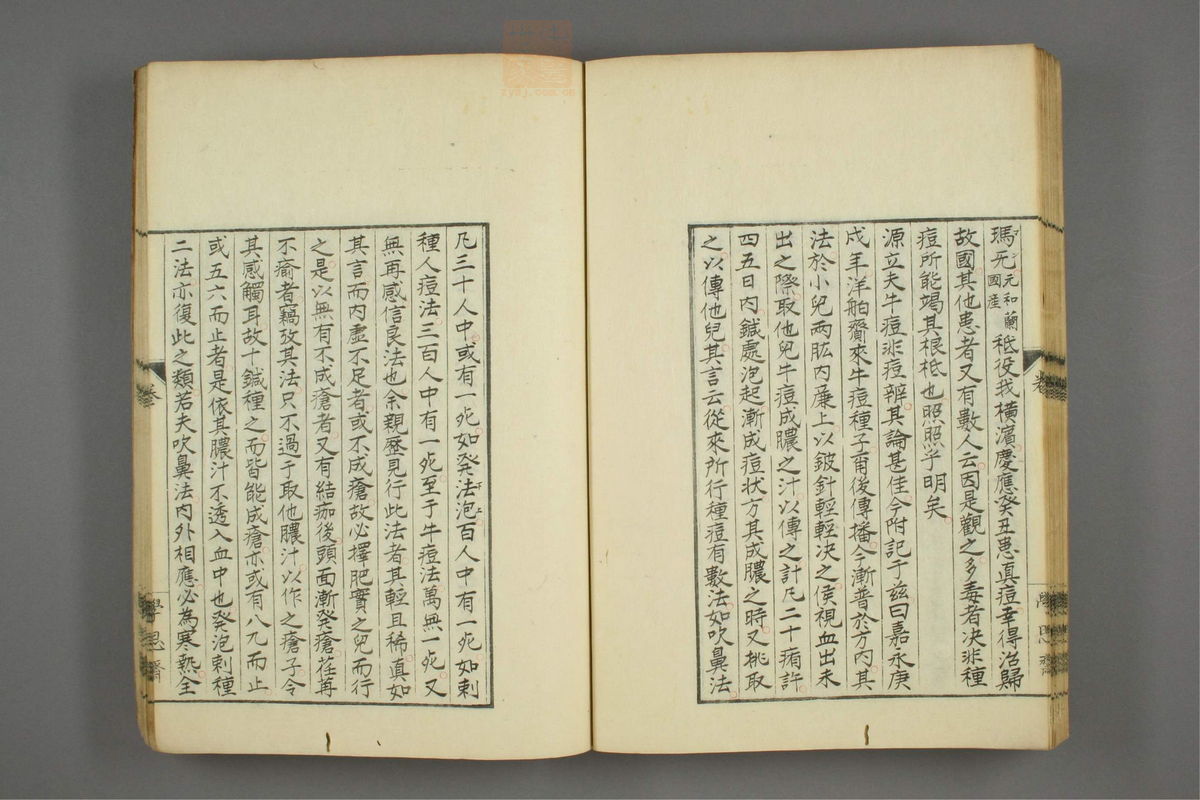 瑪旡元和蘭國產秪役我橫濵慶應癸丑患真痘幸得治歸
故國其他患者又有數人云因是觀之多毒者决非種
痘所能竭其根柢也照照乎明矣
源立夫牛痘非痘辨其論甚佳今附記于玆曰嘉永庚
戌年洋舶齎來牛痘種子甭後傳播今漸普於方內其
法於小兒兩肱内廉上以鈹針輕輕决之俟視血出未
出之際取他兒牛痘成膿之汁以傳之計凡二十痏許
四五日内鍼處泡起漸成痘状方其成膿之時又挑取
之以傳他兒其言云從來所行種痘有數法如吹鼻法
凡三十人中或有一死如発泡法百人中有一死如刺
種人痘法三百人中有一死至于牛痘法萬無一死又
無再感信良法也余親歷見行此法者其輕且稀真如
其言而内虛不足者或不成瘡故必擇肥實之兒而行
之是以無有不成瘡者又有結痂後頭面漸発瘡荏苒
不瘉者竊攷其法只不過于取他膿汁以作之瘡子令
其感觸耳故十鍼種之而皆能成瘡亦或有八九而止
或五六而止者是依其膿汁不透入血中也発泡刺種
二法亦復此之類若夫吹鼻法内外相應必為寒熱全
卷
學思齋